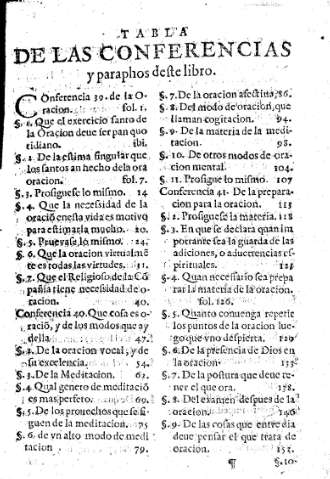 TABLA
DE LAS CONFERENCIAS
y paraphos deste libro.
COnferencia 39. de la O-
racion. fol. 1.
§. 1. Que el exercicio santo de
la Oracion deue ser pan quo
tidiano. ibi.
§. 2. De la estima singular que
los santos an hecho dela ora
cion. fol. 7.
§. 3. Prosiguese lo mismo. 14
§. 4. Que la necessidad de la
oració enesta vida es motivo
para estimarla mucho. 20.
§. 5. Pruevase lo mismo. 24.
§. 6. Que la oracion virtualmē
te es todas las virtudes. 31.
§. 7. Que el Religioso de la Cō
pañia tiene necessidad de o-
racion. 40.
Conferencia 40. Que cosa es o-
ració, y de los modos que ay
della 47.
§. 2. De la oracion vocal, y de
su excelencia. 54.
§. 3. De la Meditacion. 62.
§. 4 Qual genero de meditació
es mas perfeto. 69.
§. 5. De los prouechos que se si
guen de la meditacion. 75
§. 6. de vn alto modo de medi
tacion 79.
§. 7. De la oracion afectiua, 86.
§. 8. Del modo de oracion, que
llaman cogitacion. 94.
§. 9. De la materia de la medi-
tacion. 98.
§. 10. De otros modos de ora-
cion mental. 104.
§. 11. Prosigue lo mismo. 107
Conferencia 41. De la prepara-
cion para la oracion. 113
§. 2. Prosiguese la materia. 118
§. 3. En que se declara quan im
portante sea la guarda de las
adiciones, o aduertencias es-
pirituales. 121
§. 4. Quan necessario sea prepa
rar la materia de la oracion.
fol. 126.
§. 5. Quanto conuenga repetir
los puntos de la oracion lue-
go que vno despierta. 129
§. 6. De la presencia de Dios en
la oracion 133
§. 7. De la postura que deue te-
ner el que ora. 138.
§. 8. Del examen despues de la
oracion. 146
§. 9. De las cosas que entre dia
deue pensar el que trata de
oracion. 152.
¶ §. 10.